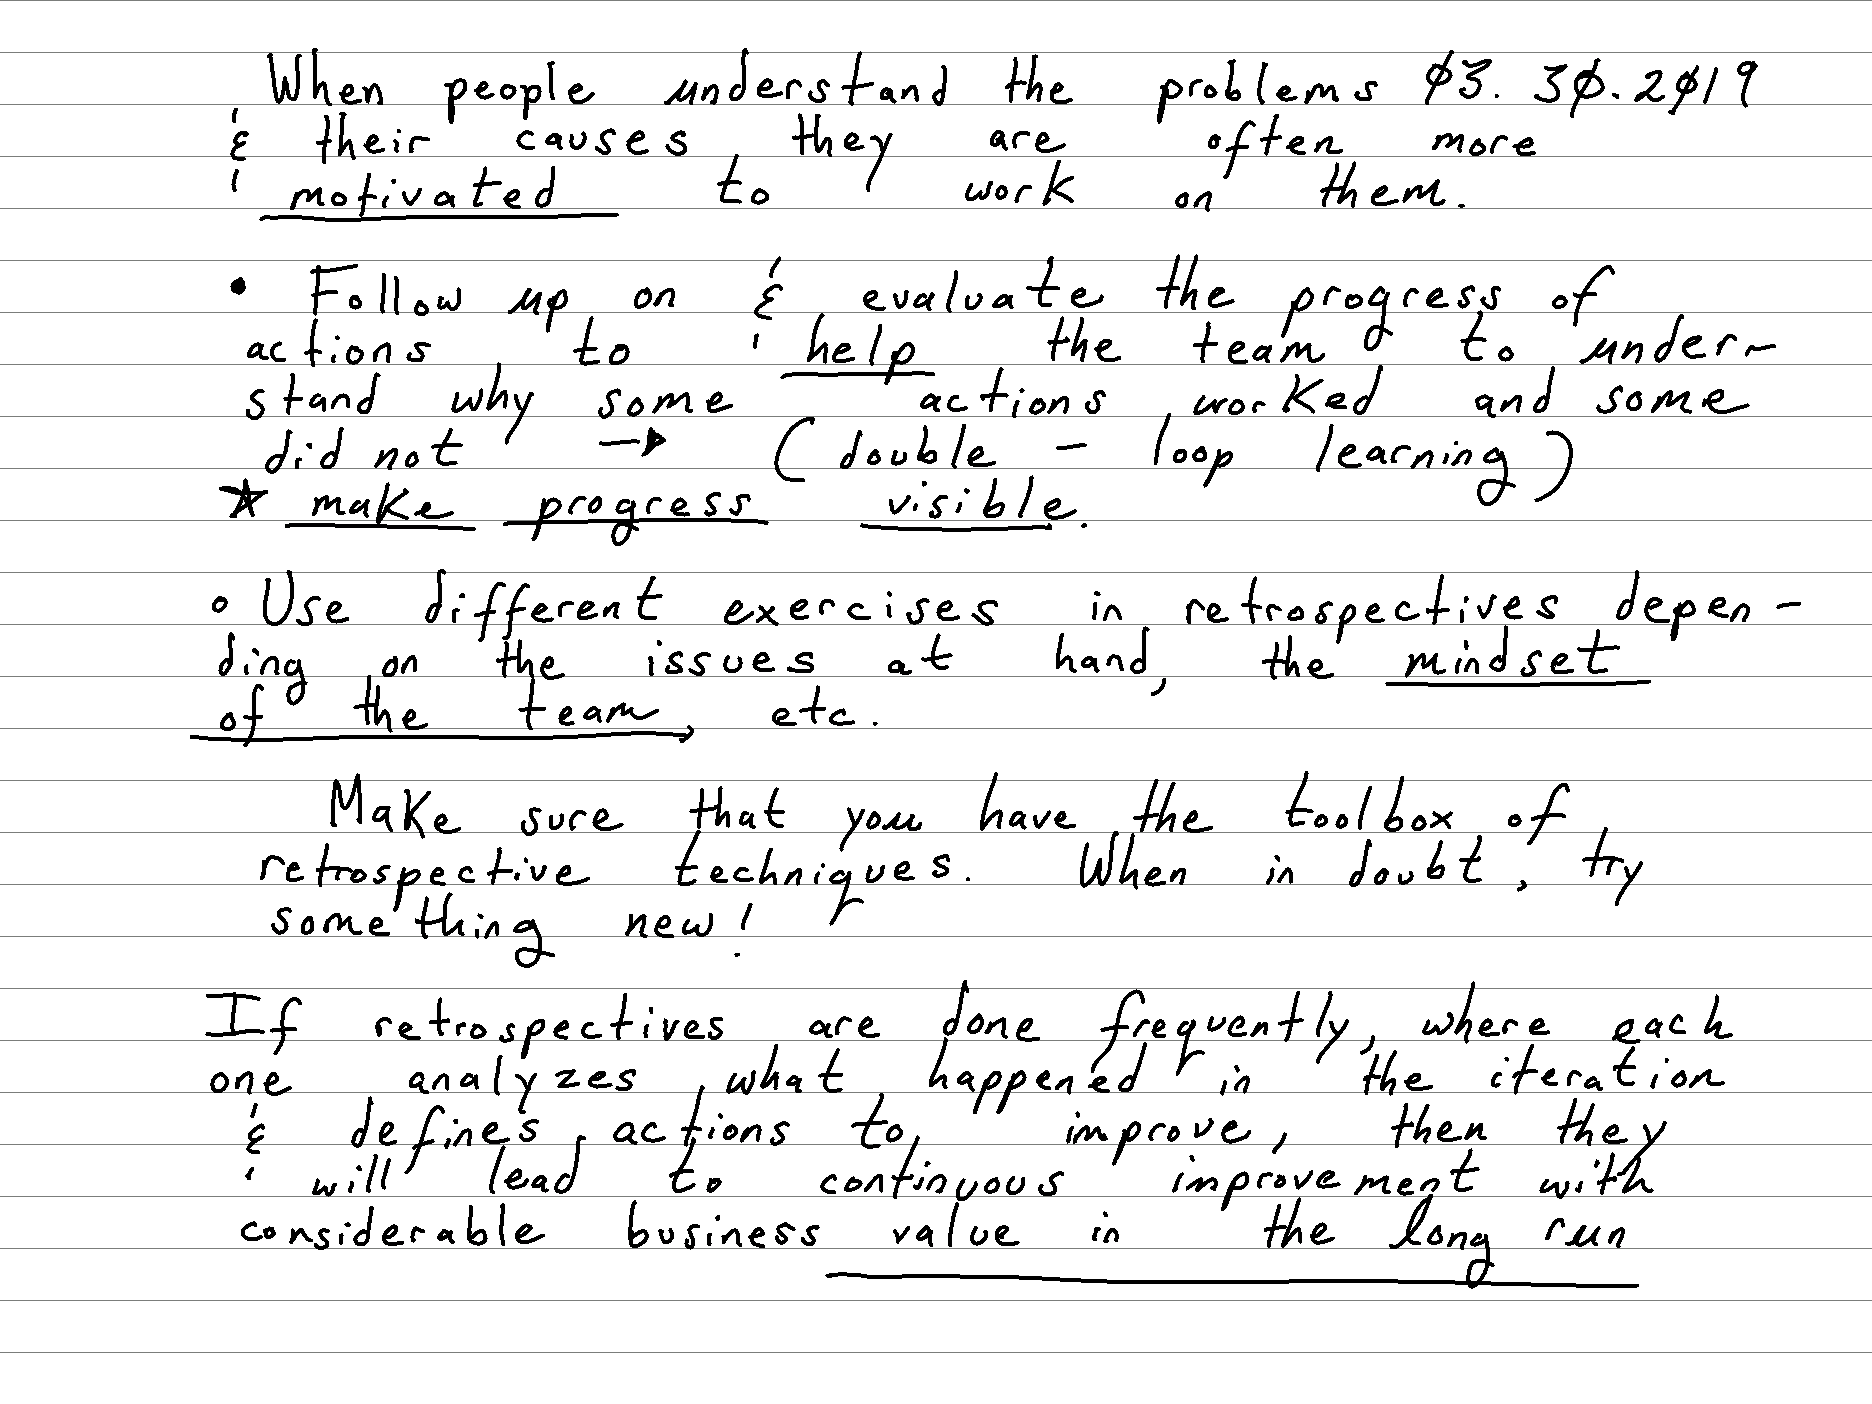 When people understand the problems 03.30.2019
& their causes they are often more
motivated to work on them.
• Follow up on & evaluate the progress of
actions to help the team to under-
stand why some actions worked and some
did not → (double-loop learning)
★ make progress visible.
∘ Use different exercises in retrospectives depen-
ding on the issues at hand, the mindset
of the team, etc.
Make sure that you have the toolbox of
retrospective techniques. When in doubt, try
something new!
If retrospectives are done frequently, where each
one analyzes what happened in the iteration
& defines actions to improve, then they
will lead to continuous improvement with
considerable business value in the long run